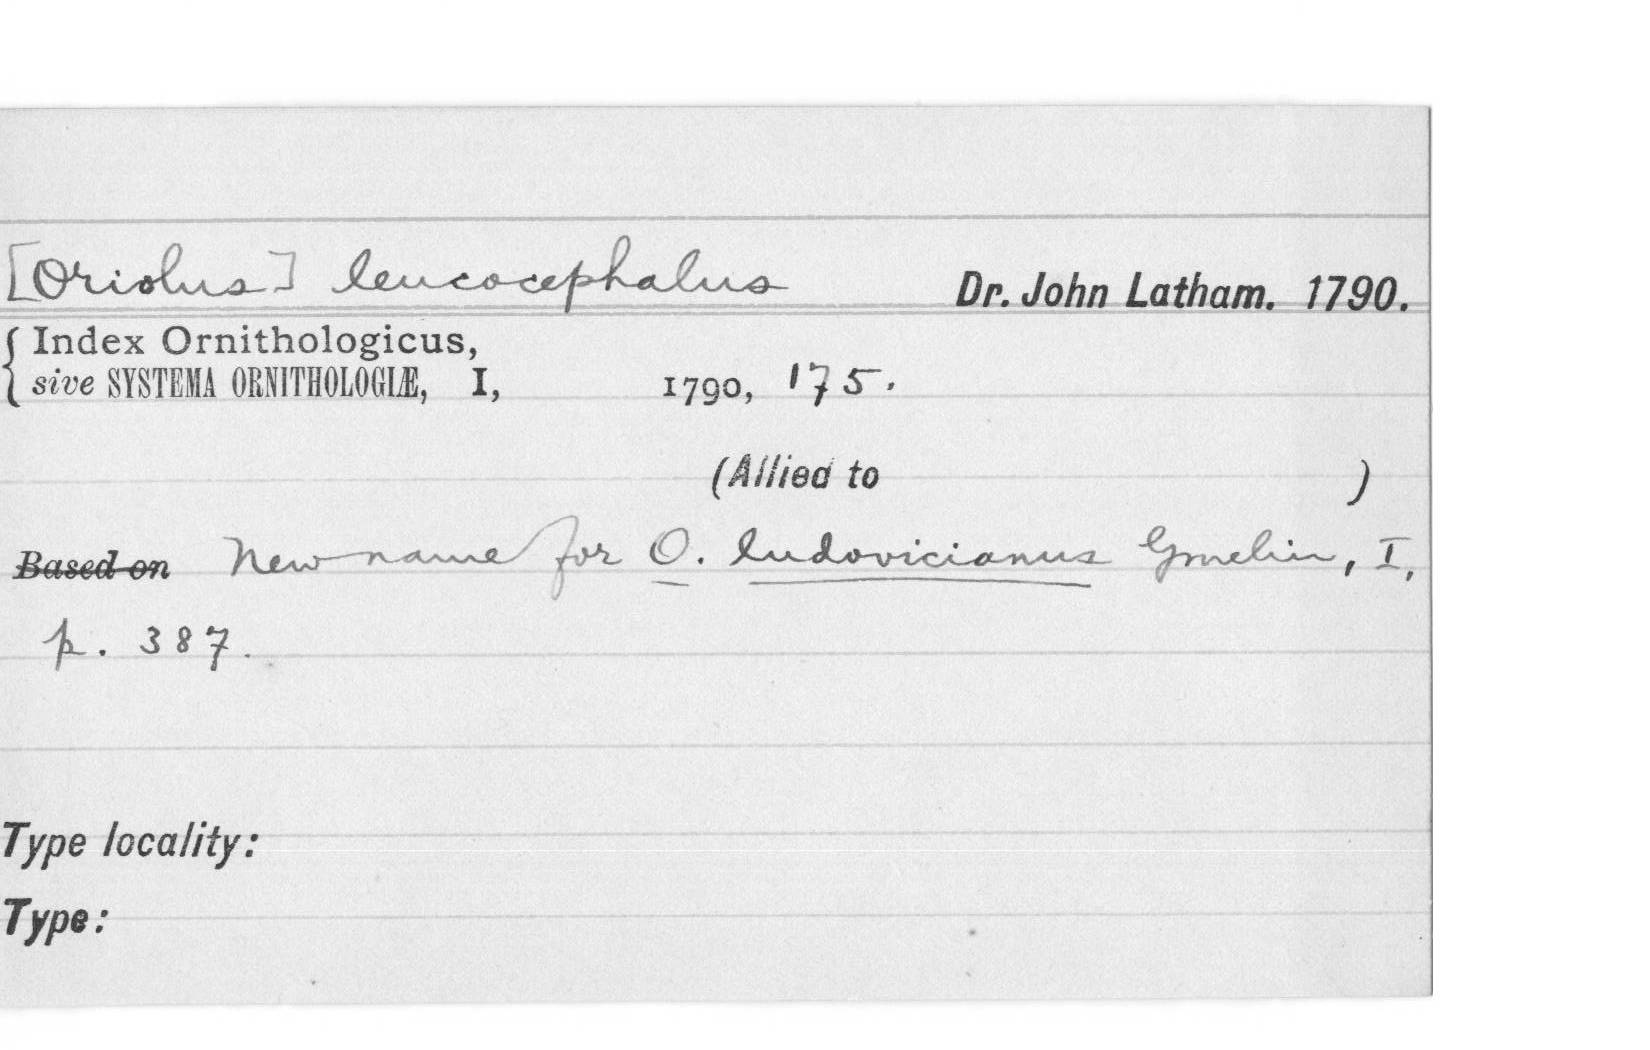 [Oriolus] leucocephalus Dr. John Latham. 1790.
Index Ornithologicus,
sive SYSTEMA ORNITHOLOGIÆ, I, 1790, 175.
(Allied to )
Based on New name for O. ludovicianus Gmelin, I,
p. 387.
Type locality:
Type: